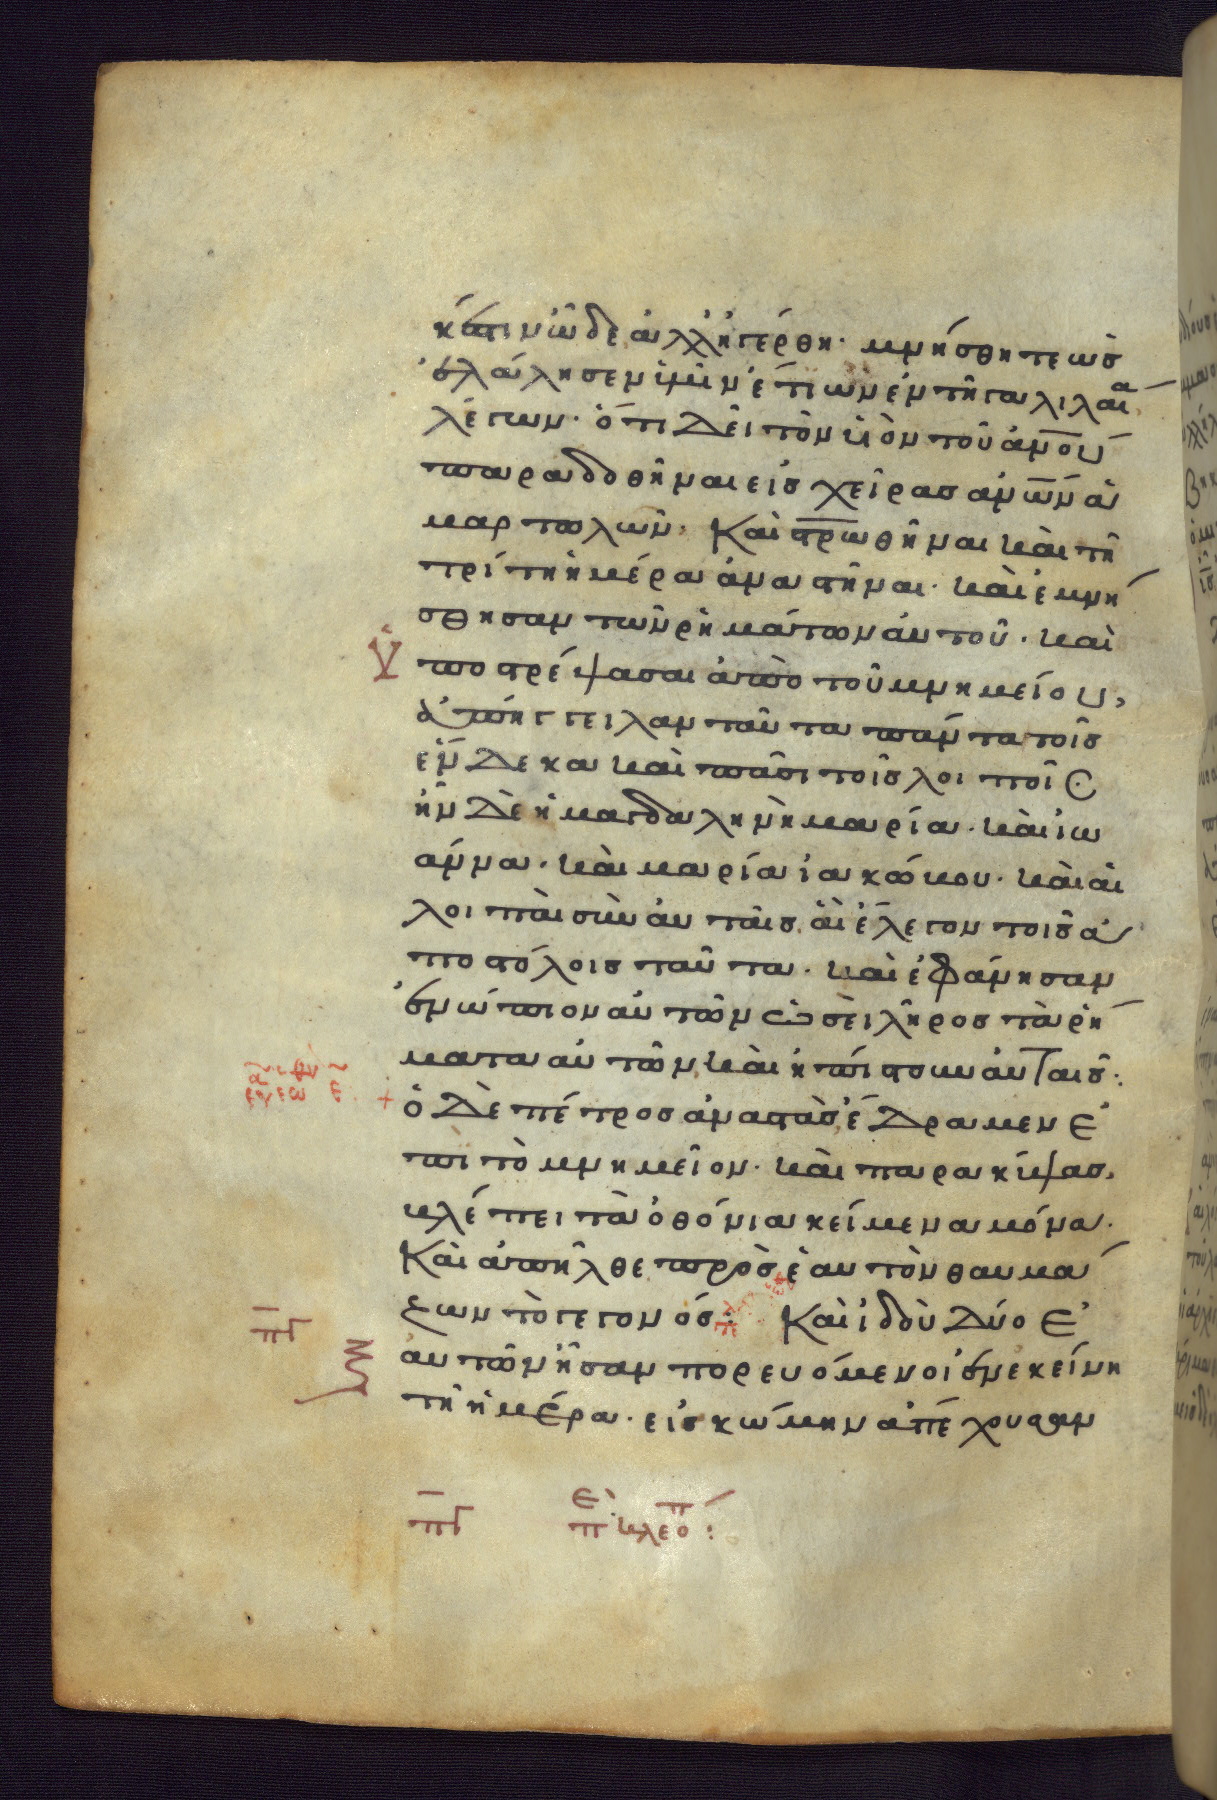 κἔστιν ὧδε ἀλλ' ἠγέρθη· μνήσθητε ὡς
ἐλάλησεν ὑμῖν ἔτι ὢν ἐν τῆ γαλιλαία
λέγων· ὅτι δεῖ τὸν υἱὸν τοῦ ἀνου
παραδοθῆναι εἰς χεῖρας ἀνων ἁ
μαρτωλῶν. Καὶ στρωθῆναι καὶ τῆ
τρίτη ἡμέρα ἀναστῆναι· καὶ ἐμνή
σθησαν τῶν ῥημάτων αὐτοῦ· καὶ
Ὑ ποστρέψασαι ἀπὸ τοῦ μνημείου,
ἀπήγγειλαν ταῦτα πάντα τοῖς
ἕνδεκα καὶ πᾶσι τοῖς λοιποῖς
ἦν δὲ ἡ μαγδαληνὴ μαρία· καὶ ἰω
άννα· καὶ μαρία ἰακώβου· καὶ αἱ
λοιπαὶ σὺν αὐταῖς. αἳ ἔλεγον τοὺς ἀ
ποστόλοις ταῦτα· καὶ ἐφάνησαν
ἐνώπιον αὐτῶν ὡσεὶ λῆρος τὰ ῥή
ματα αὐτῶν καὶ ἠπίστουν αὐταῖς:
+ ὁ δὲ πέτρος ἀναστὰς ἔδραμεν ἐ
πὶ τὸ μνημεῖον· καὶ παρακύψας,
βλέπει τὰ ὀθόνια κείμενα μόνα.
Καὶ ἀπῆλθε πρὸς ἑαυτὸν θαυμά
ζων τὸ γεγονός: Καὶ ἰδοὺ δύο ἐ
πγ
αὐτῶν ἦσαν πορευόμενοι ἐν ἐκείνη
τῆ ἡμέρα· εἰς κώμην ἀπέχουσαν
πγ